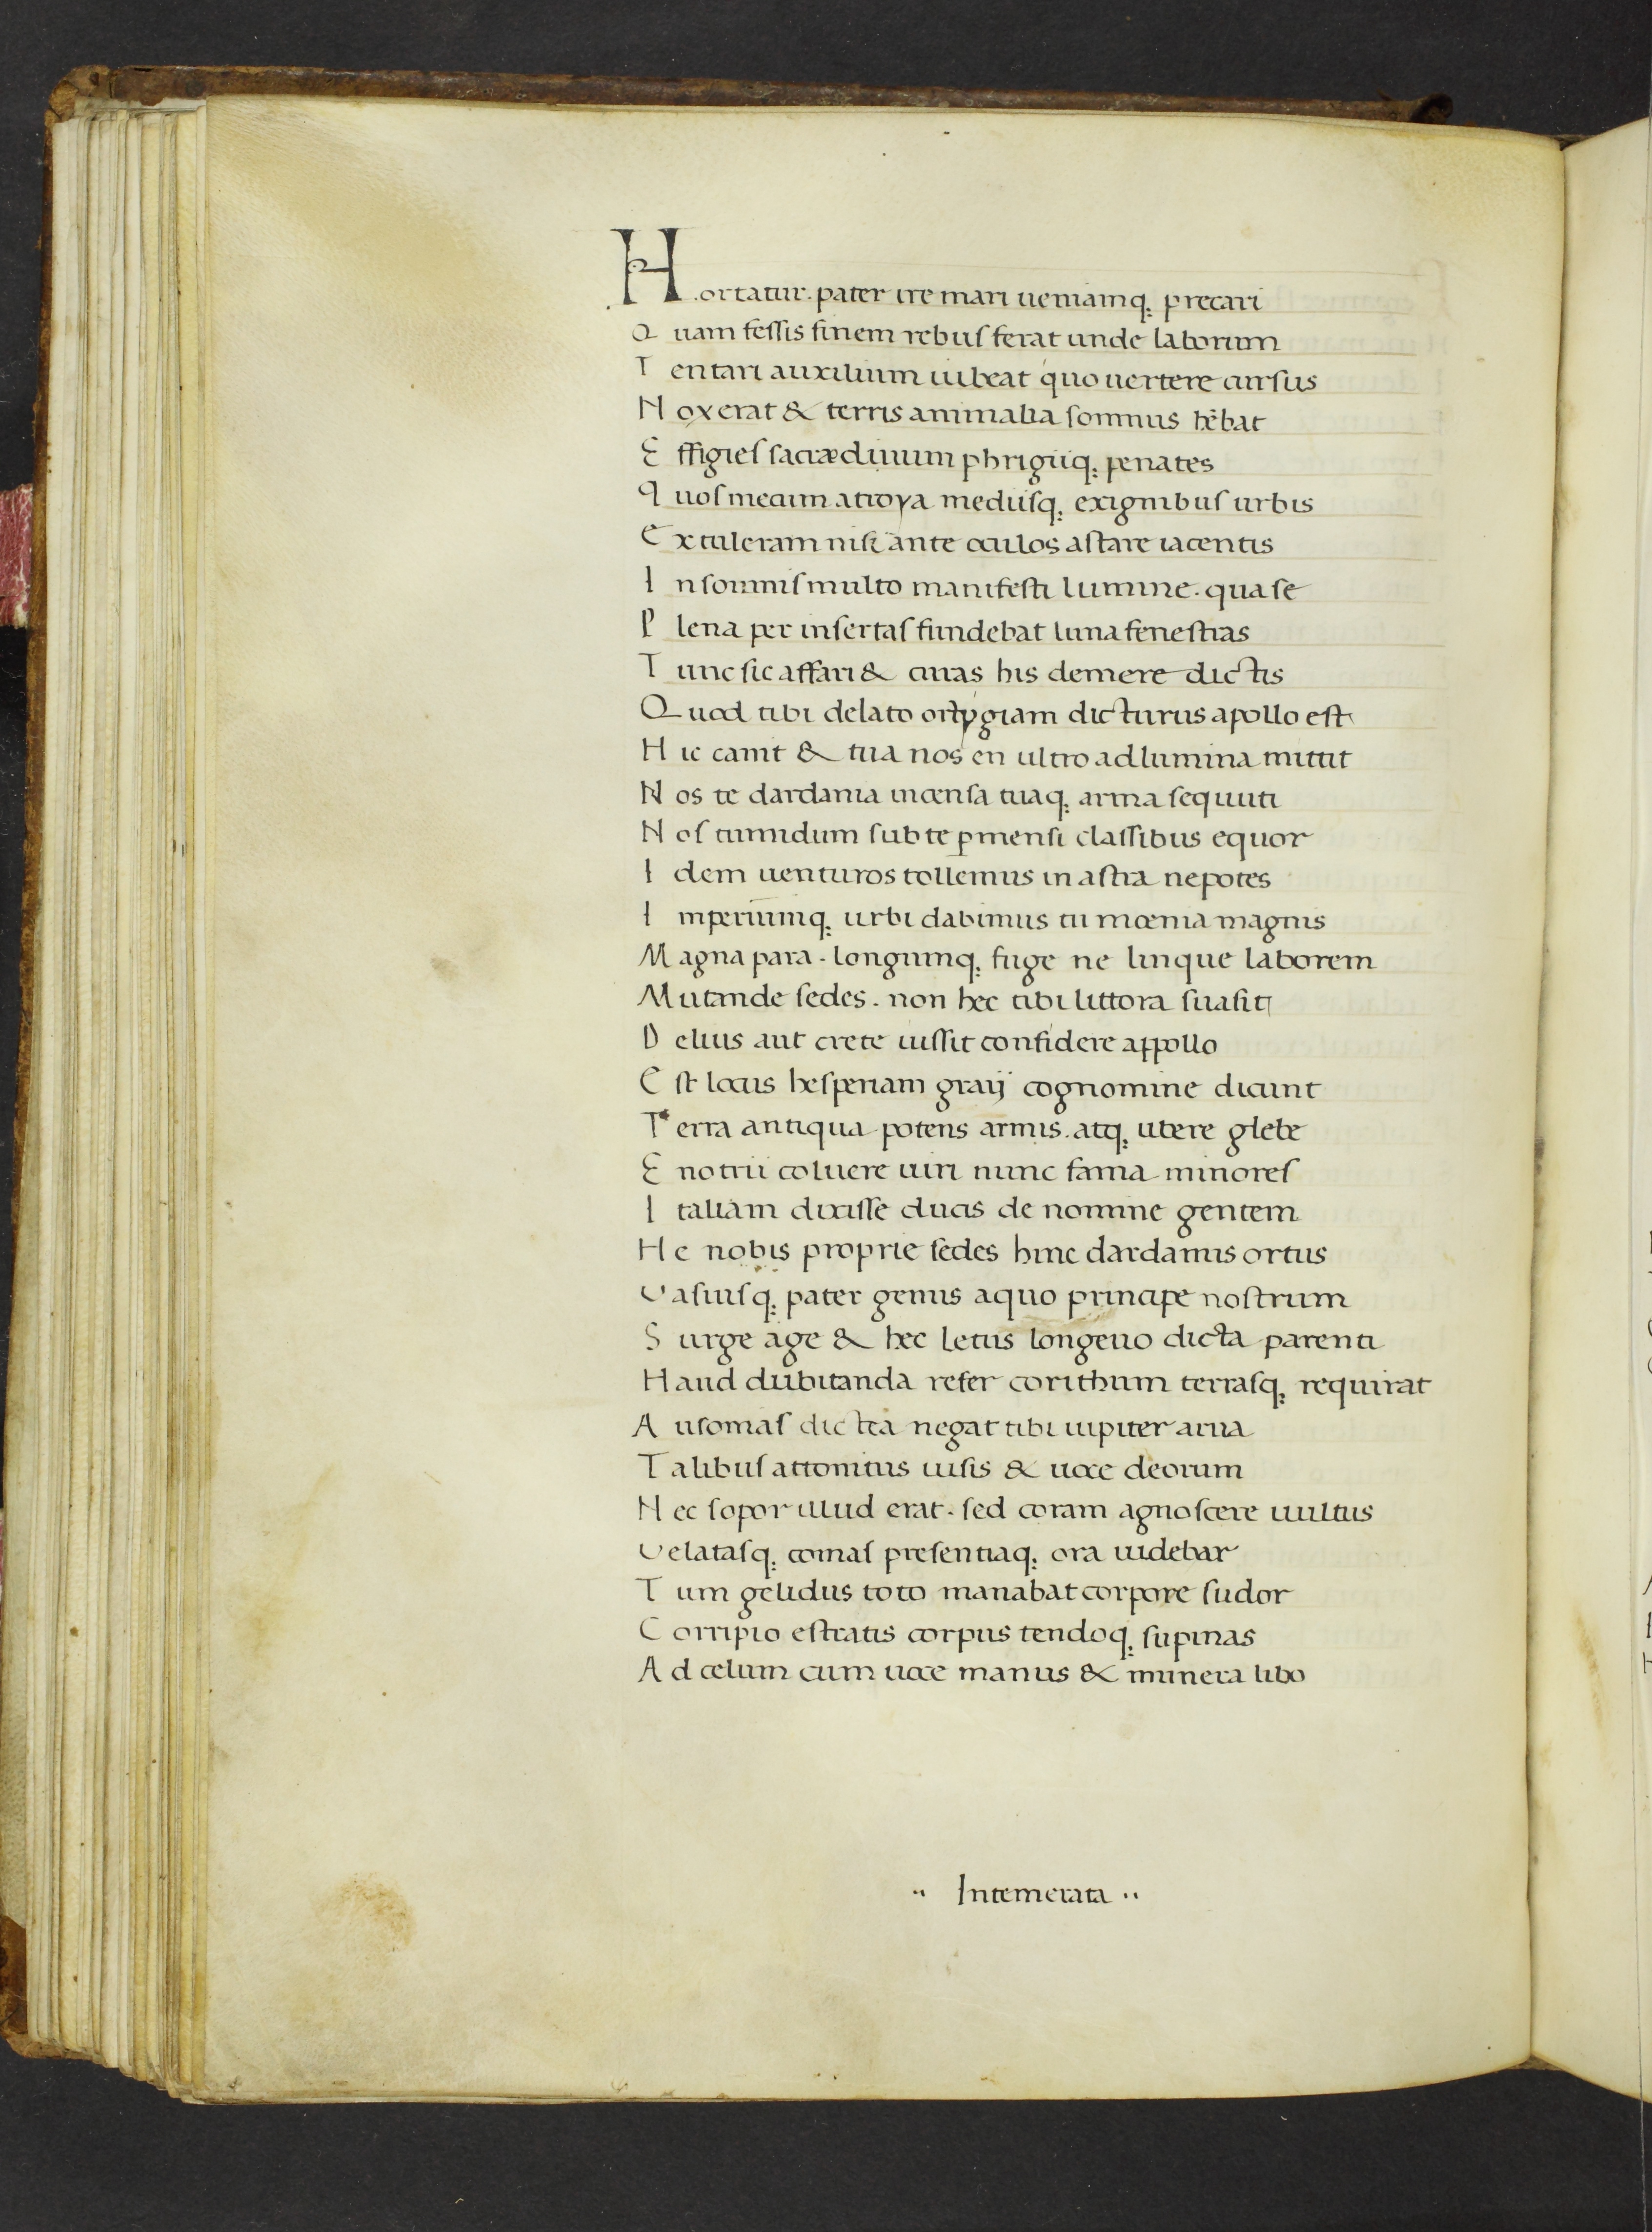 Hortatur. pater ire mari ueniamq; precari
Quam fessis finem rebus ferat unde laborum
Tentari auxilium iubeat quo uertere cursus
Nox erat & terris animalia somnus hēbat
Effigies sacræ diuum phrigiiq; penates
quos mecum a troya mediisq; ex ignibus urbis
Extuleram uisi ante oculos astare iacentis
In somnis multo manifesti lumine. qua se
Plena per insertas fundebat luna fenestras
Tunc sic affari & curas his demere dictis
Quod tibi delato ortygiam dicturus apollo est
Hic canit & tua nos en ultro ad lumina mittit
Nos te dardania incensa tuaq; arma sequuti
Nos tumidum sub te p̱mensi classibus equor
Idem uenturos tollemus in astra nepotes
Imperiumq; urbi dabimus tu mœnia magnis
Magna para. longumq; fuge ne linque laborem
Mutande sedes. non hec tibi littora suasit
Delius aut crete iussit considere appollo
Est locus hesperiam graij cognomine dicunt
Terra antiqua potens armis. atq; ubere glebe
Enotrii coluere uiri nunc fama minores
Italiam dixisse ducis de nomine gentem
He nobis proprie sedes hinc dardanus ortus
Vasiusq; pater genus a quo principe nostrum
Surge age & hec letus longeuo dicta parenti
Haud dubitanda refer corithum terrasq; requirat
Ausonias dictea negat tibi iupiter arua
Talibus attonitus uisis & uoce deorum
Nec sopor illud erat. sed coram agnoscere uultus
Velatasq; comas presentiaq; ora uidebar
Tum gelidus toto manabat corpore sudor
Corripio estratis corpus tendoq; supinas
Ad celum cum uoce manus & munera libo
·· Intemerata ··